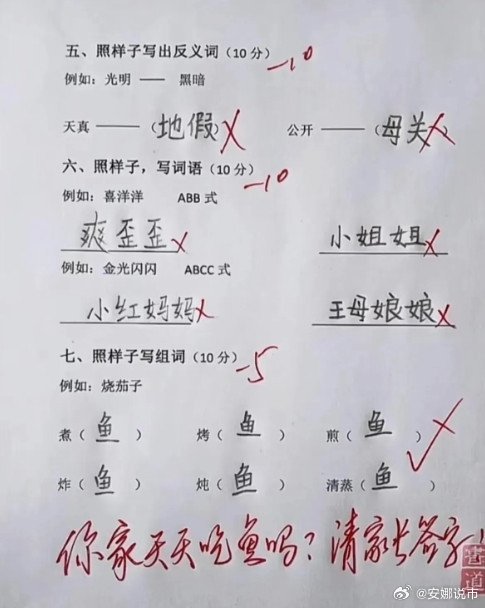 五、照样子写出反义词（10 分） -10
例如：光明 —— 黑暗
天真 ——（地假） 公开 ——（母关）
六、照样子，写词语（10 分） -10
例如：喜洋洋 ABB 式
爽歪歪 小姐姐
例如：金光闪闪 ABCC 式
小红妈妈 王母娘娘
七、照样子写组词（10 分） -5
例如：烧茄子
煮（鱼） 烤（鱼） 煎（鱼）
炸（鱼） 炖（鱼） 清蒸（鱼）
你家天天吃鱼吗？请家长签字！
@安娜说市